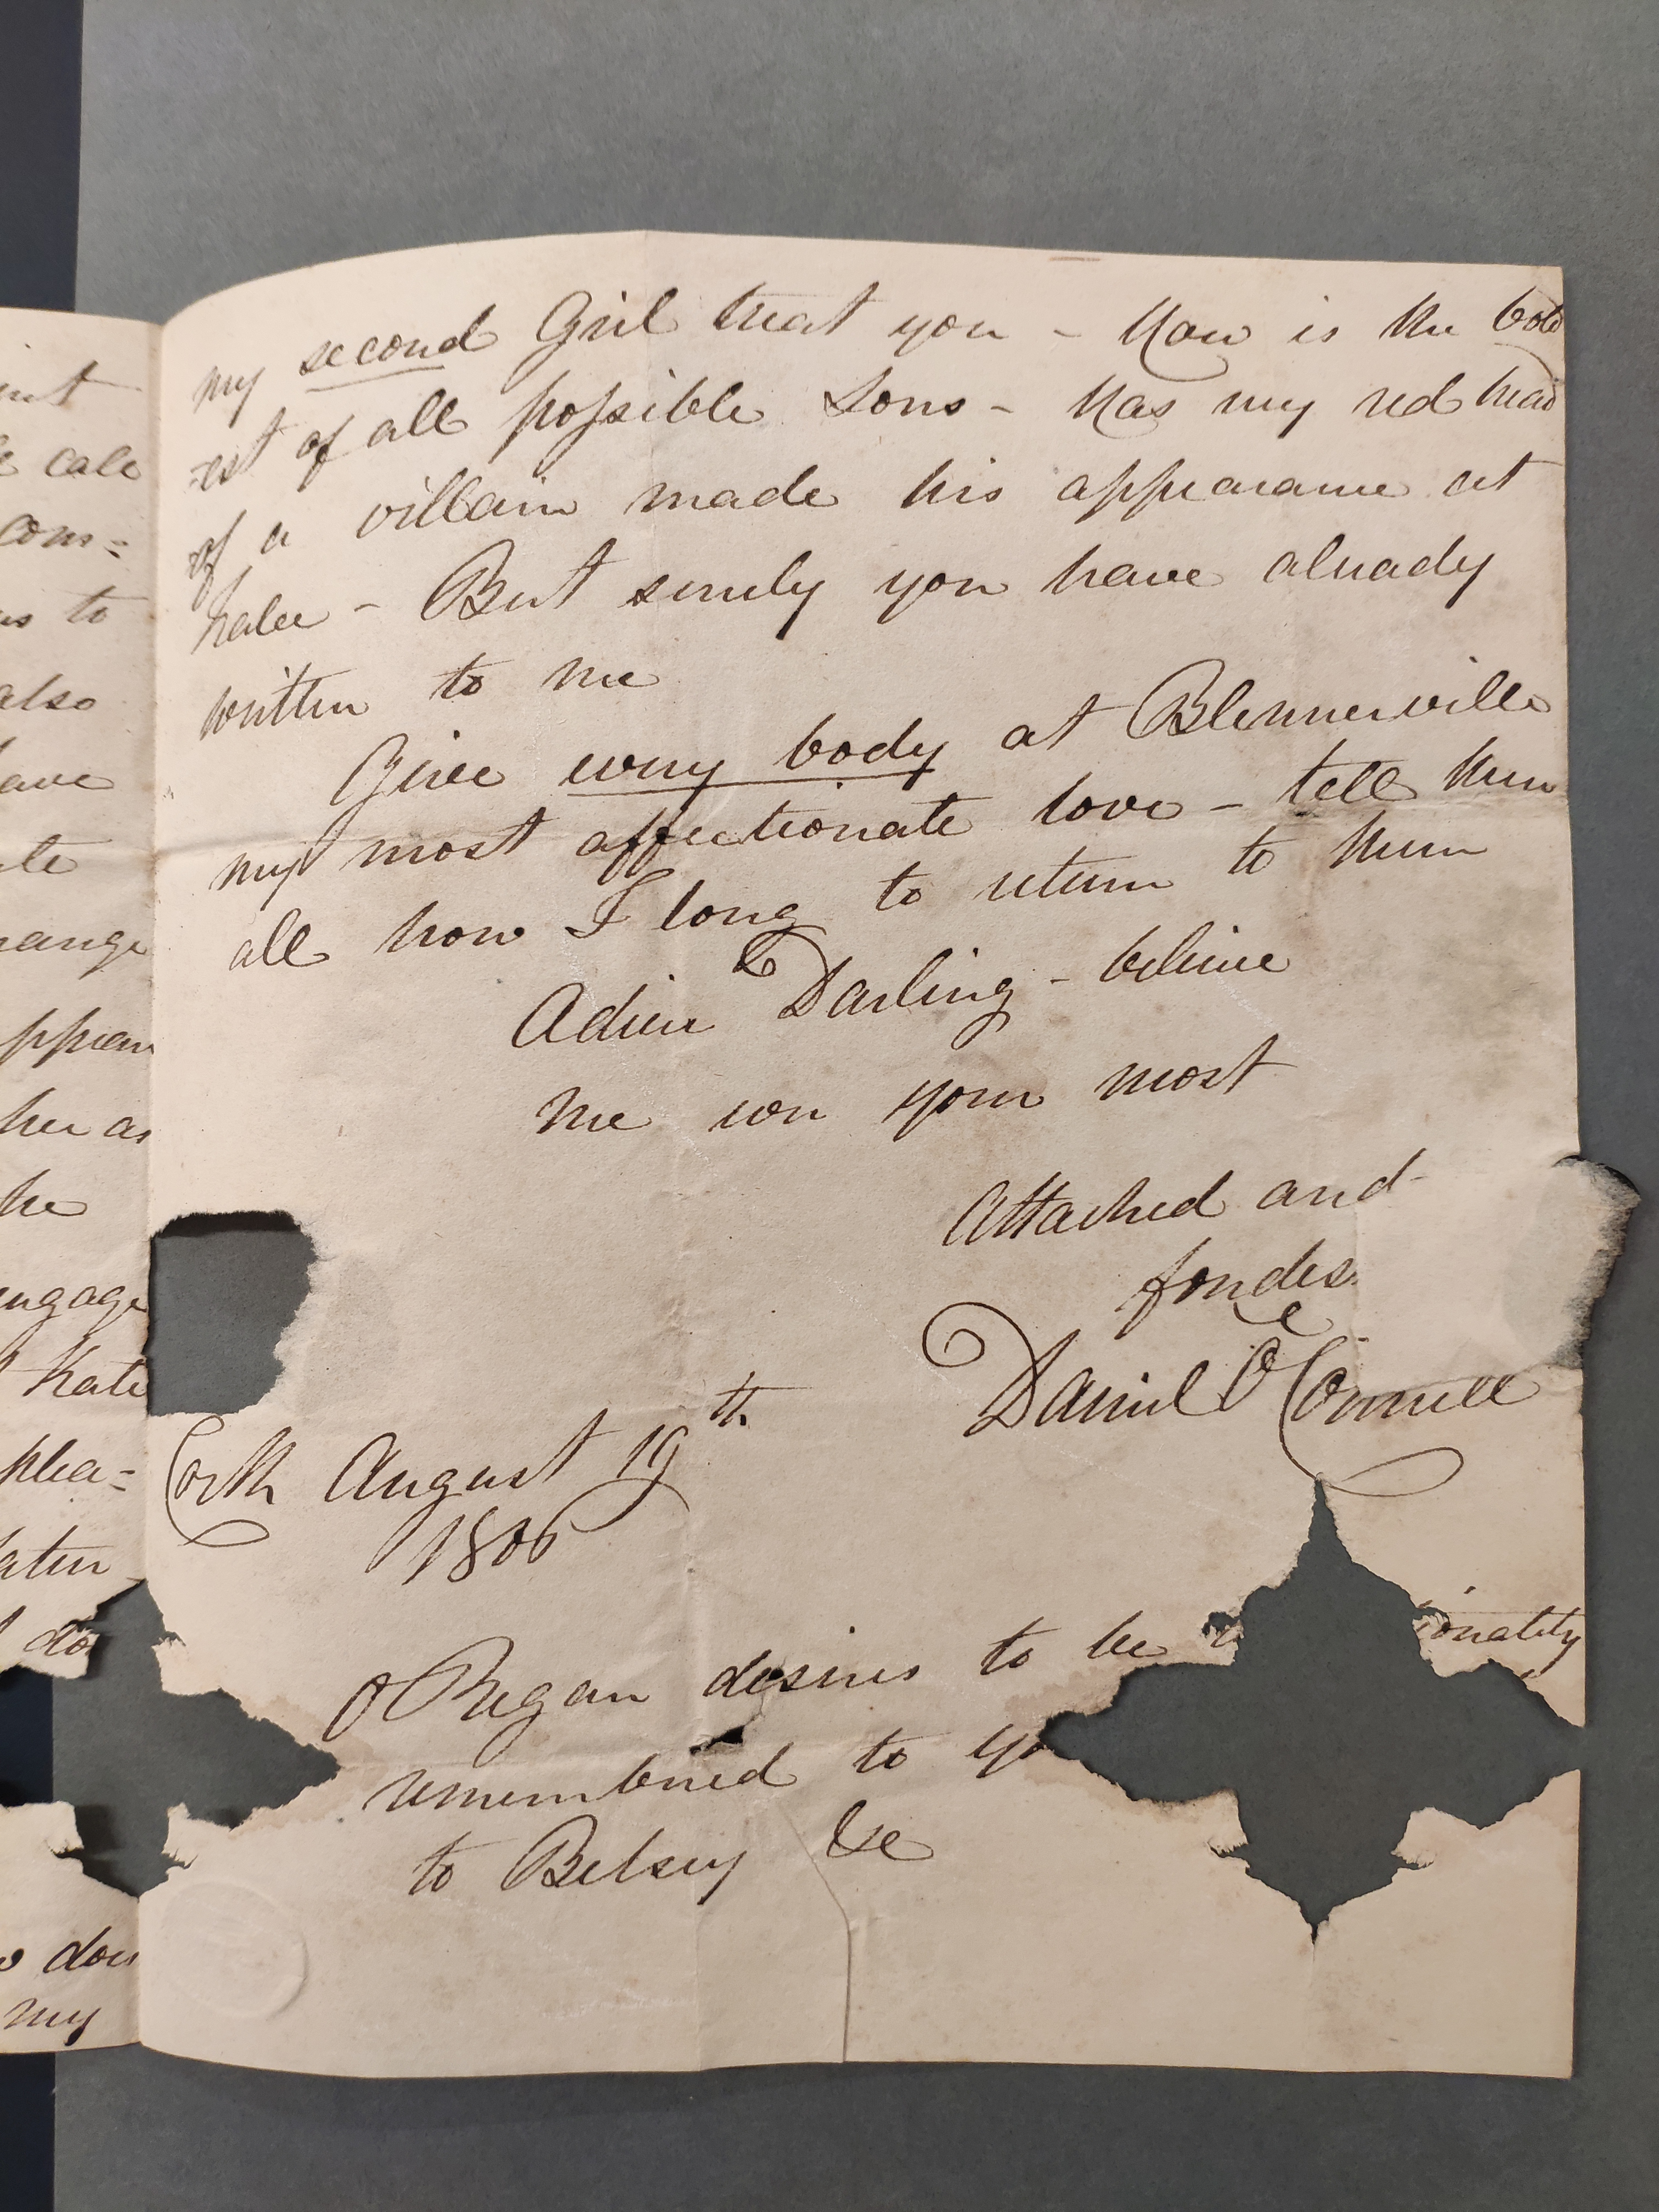 int
cale
com=
us to
also
have
ate
range
ppear
her as
he
engage
Kate
plea=
do
dou
my
my second Girl treat you - How is the bold
-est of all possible Sons - Has my red head
of a villain made his appearance at
halee - But surely you have already
written to me
Give every body at Blennerville
my most affectionate love - tell them
all how I long to return to them
Adieu Darling - believe
me ever your most
Attached and
fondes
Daniel O'Connell
Cork August 19th
1806
O Regan desires to be ionately
remembered to yo
to Betsey &c